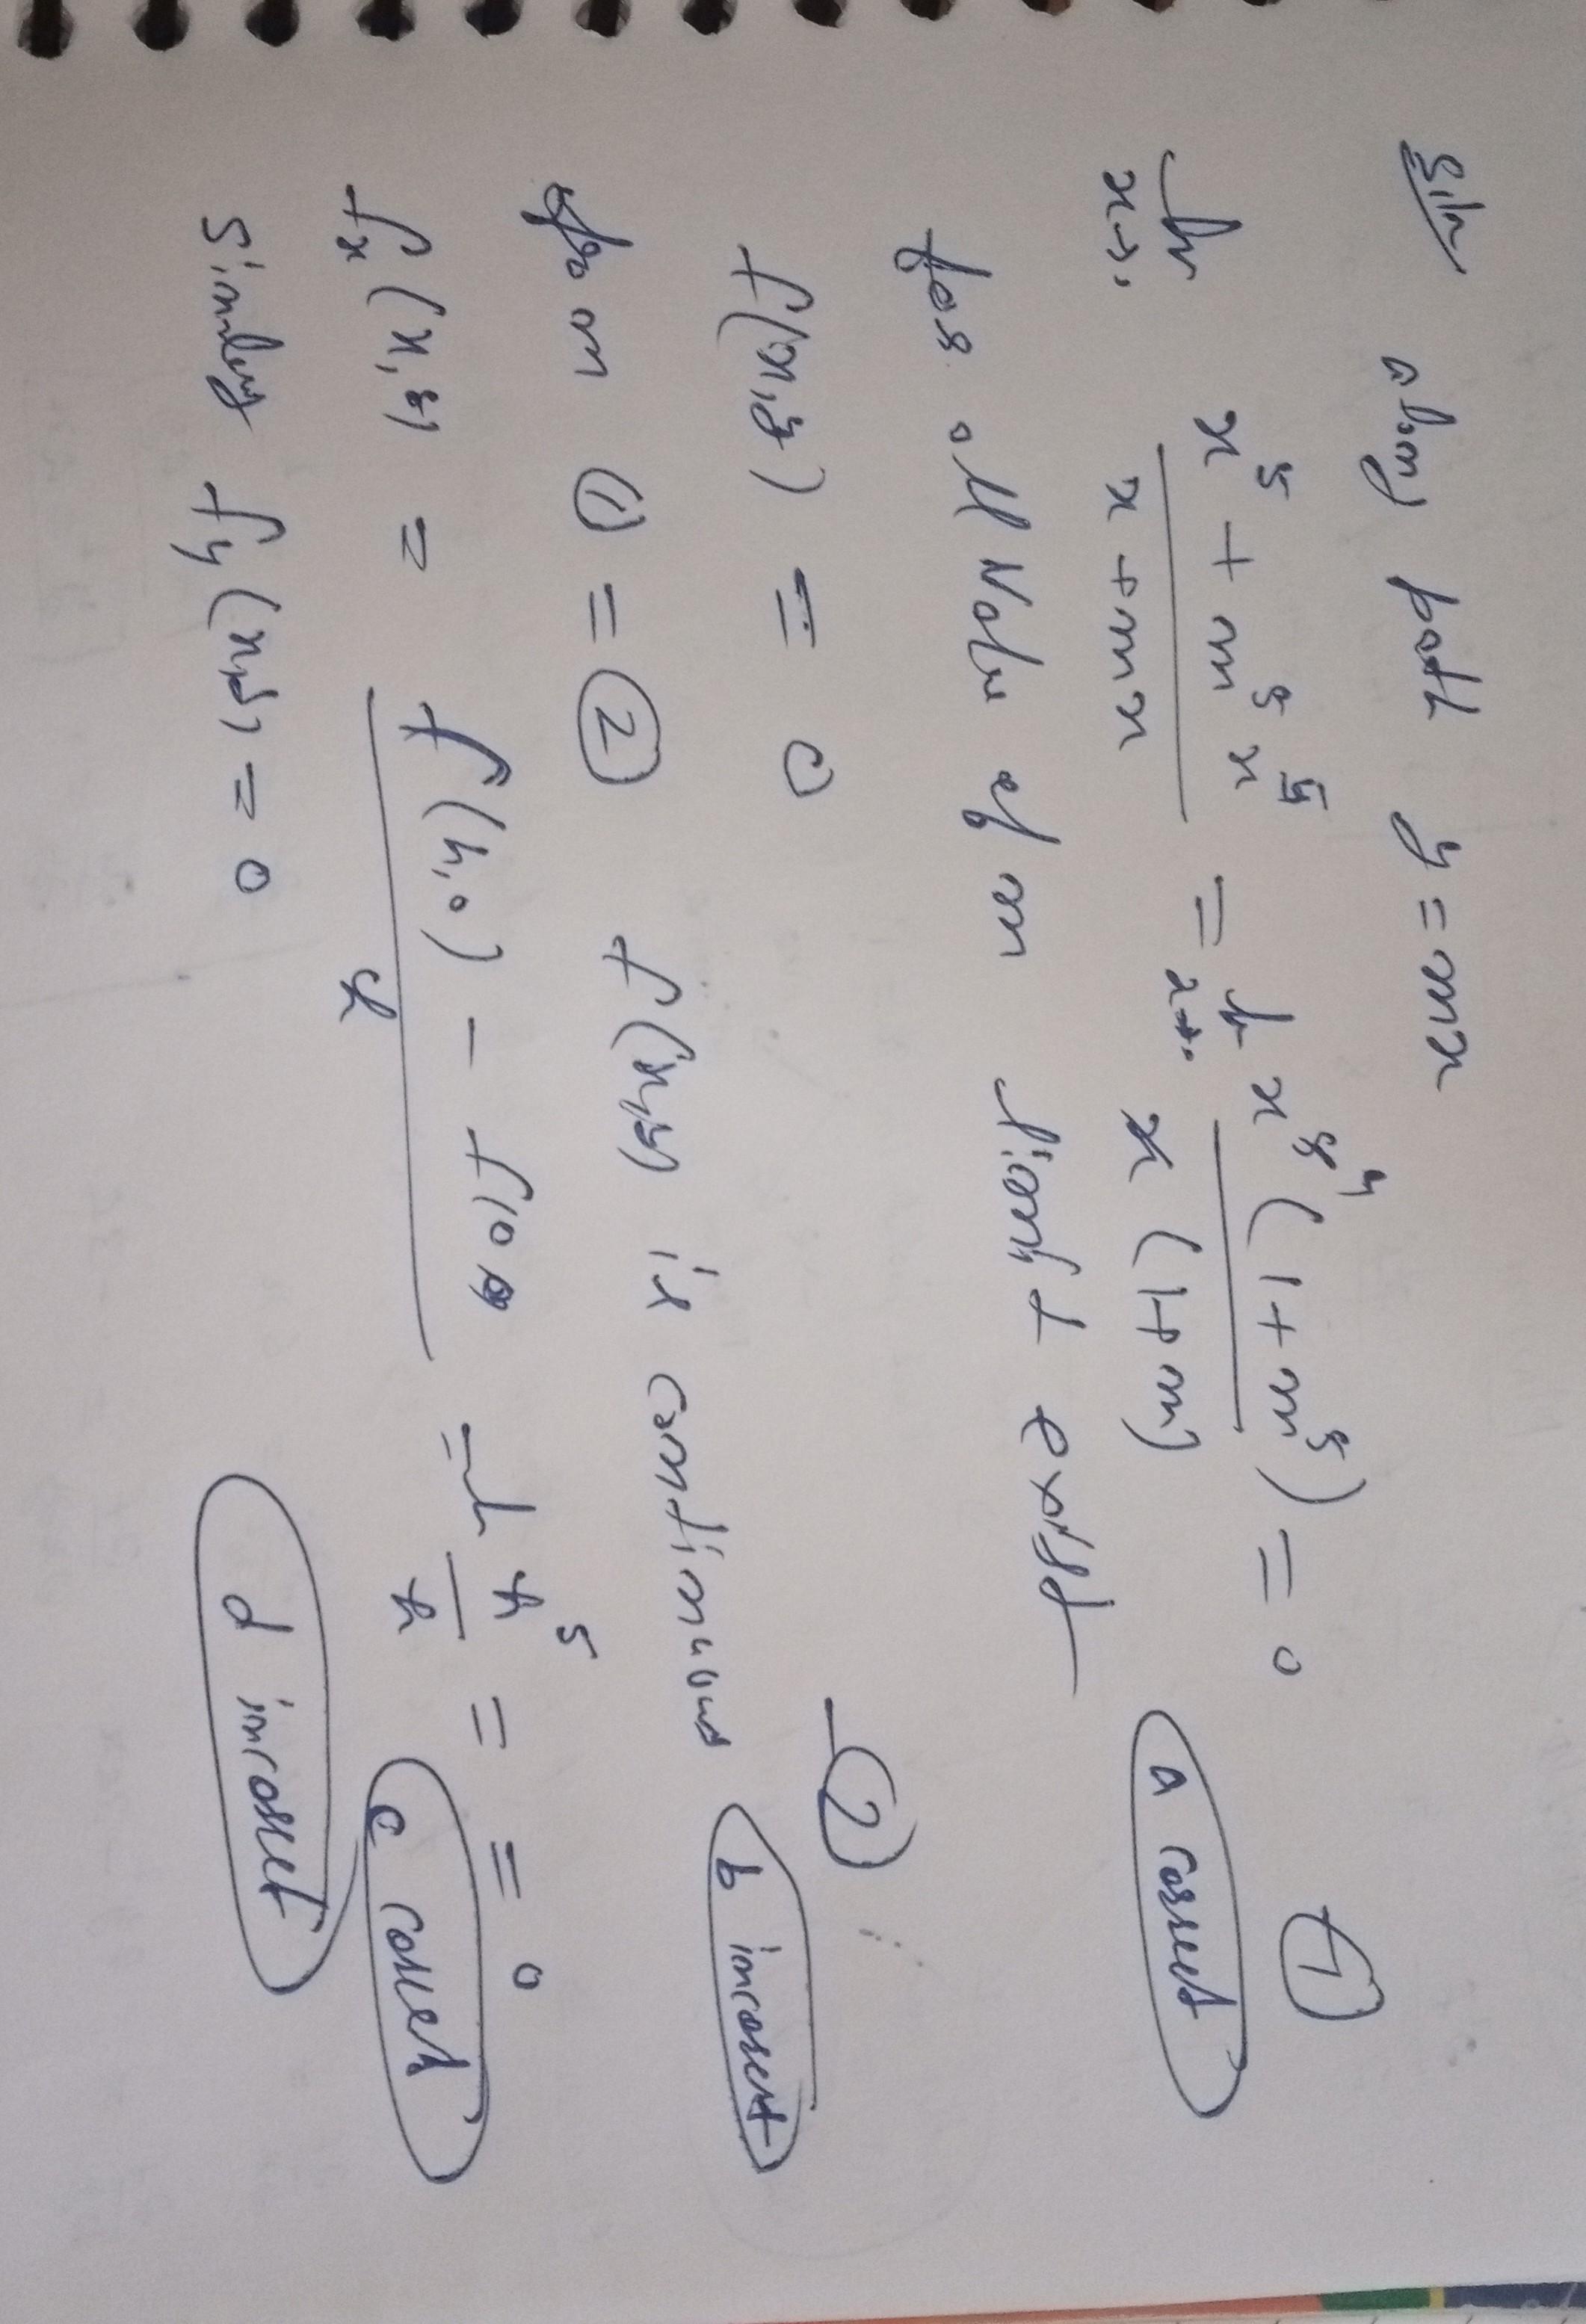 Soln along path y = mx
lim x→0 x^5 + m^5 x^5 / x + mx = lim x→0 x^5 4 (1 + m^5) / x (1 + m) = 0 — ①
a correct
for all Value of m limit exist
f(x,y) = 0 — ②
from ① = ② f(x,y) is continuous b incorrect
f_x (x,y) = f(h,0) - f(0 0 / h = lim h^5 / h = = 0
c correct
Similerly f_y (x,y) = 0 d incorrect